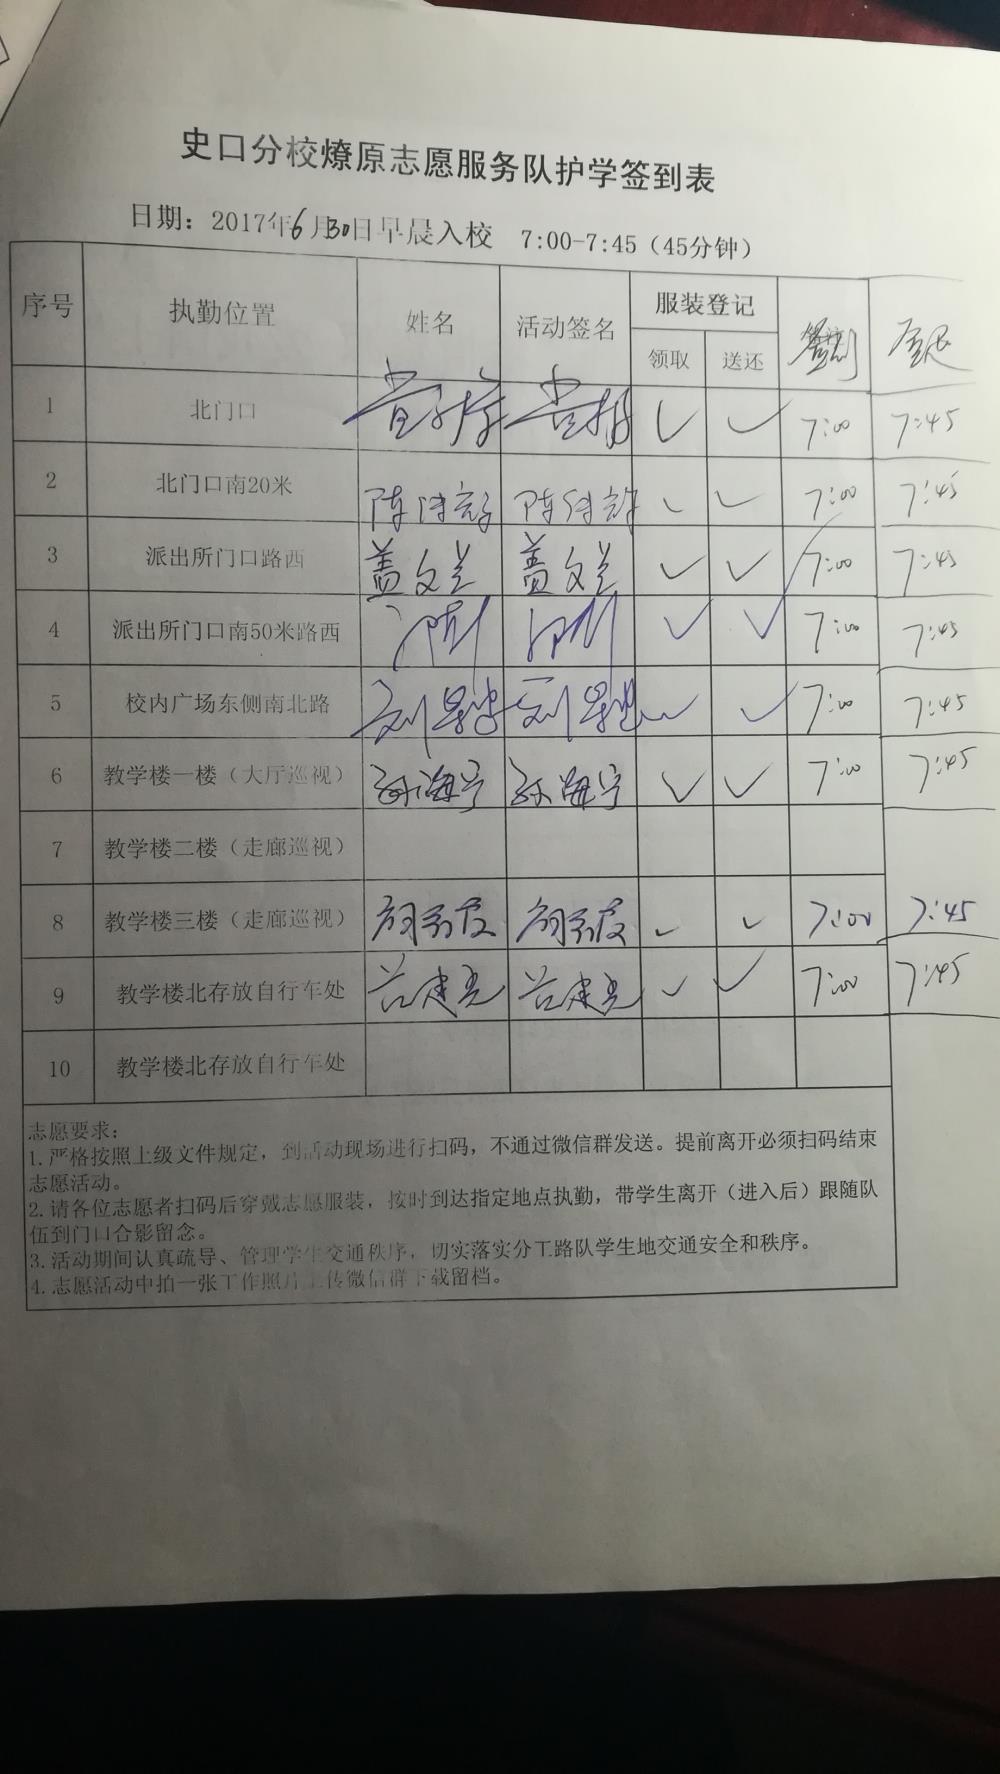 史口分校燎原志愿服务队护学签到表
日期：2017年6月30日早晨入校 7:00-7:45（45分钟）
序号 执勤位置 姓名 活动签名 服装登记 签到 签退
领取 送还
1 北门口 ✓ ✓ 7:00 7:45
2 北门口南20米 陈 陈 ✓ ✓ 7:00 7:45
3 派出所门口路西 盖文兰 盖文兰 ✓ ✓ 7:00 7:45
4 派出所门口南50米路西 ✓ ✓ 7:00 7:45
5 校内广场东侧南北路 刘 刘 ✓ ✓ 7:00 7:45
6 教学楼一楼（大厅巡视） 孙海宁 孙海宁 ✓ ✓ 7:00 7:45
7 教学楼二楼（走廊巡视）
8 教学楼三楼（走廊巡视） ✓ ✓ 7:00 7:45
9 教学楼北存放自行车处 ✓ ✓ 7:00 7:45
10 教学楼北存放自行车处
志愿要求：
1.严格按照上级文件规定，到活动现场进行扫码，不通过微信群发送。提前离开必须扫码结束
志愿活动。
2.请各位志愿者扫码后穿戴志愿服装，按时到达指定地点执勤，带学生离开（进入后）跟随队
伍到门口合影留念。
3.活动期间认真疏导、管理学生交通秩序，切实落实分工路队学生地交通安全和秩序。
4.志愿活动中拍一张工作照片上传微信群下载留档。